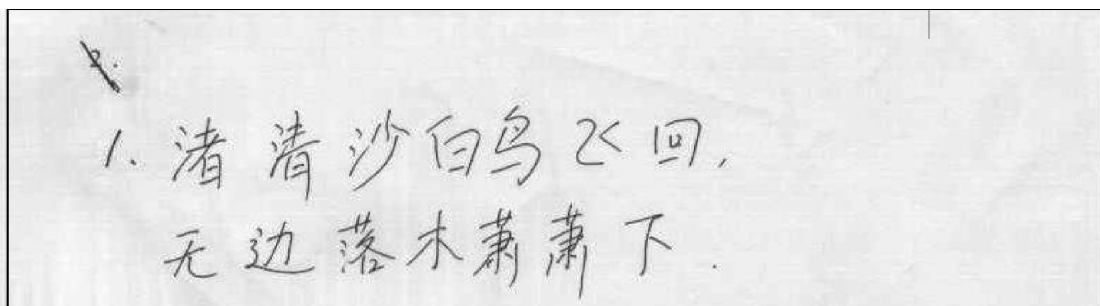 2.
1. 渚清沙白鸟飞回,
无边落木萧萧下.